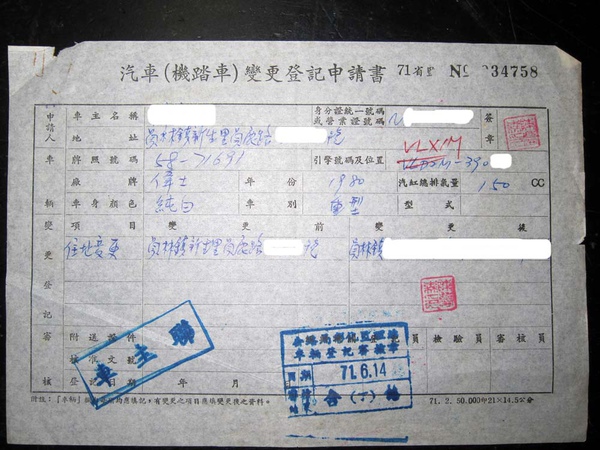 汽車(機踏車)變更登記申請書 71省 № 34758
申請人 車主名稱 身分證統一號碼或營業證號碼 簽章
地址 員林鎮新生里員鹿路 號
車輛 牌照號碼 58-71691 引擎號碼及位置 VLX1M -390
廠牌 偉士 年份 1980 汽缸總排氣量 150 CC
車身顏色 純白 車別 重型 型式
變更登記 變更項目 變更前 變更後
住址變更 員林鎮新生里員鹿路 號 員林鎮
審核 附送證件 檢驗員 審核員
核准文號
登記日期 年 月
車主聯
車輛登記審核章
日期 71.6.14
附註:「車輛」 均應填記,有變更之項目應填變更後之資料。 71.2.50.000份21×14.5公分